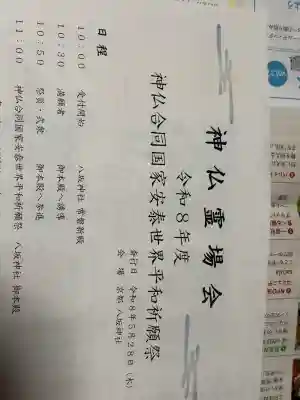 神仏霊場会
令和8年度
神仏合同国家安泰世界平和祈願祭
斎行日 令和8年5月28日(木)
会場 京都 八坂神社
日程
10:00 受付開始 八坂神社 常磐新殿
10:30 満願者 御本殿へ誘導
10:50 祭員・式衆 御本殿へ参進
11:00 神仏合同国家安泰世界平和祈願祭 八坂神社 御本殿